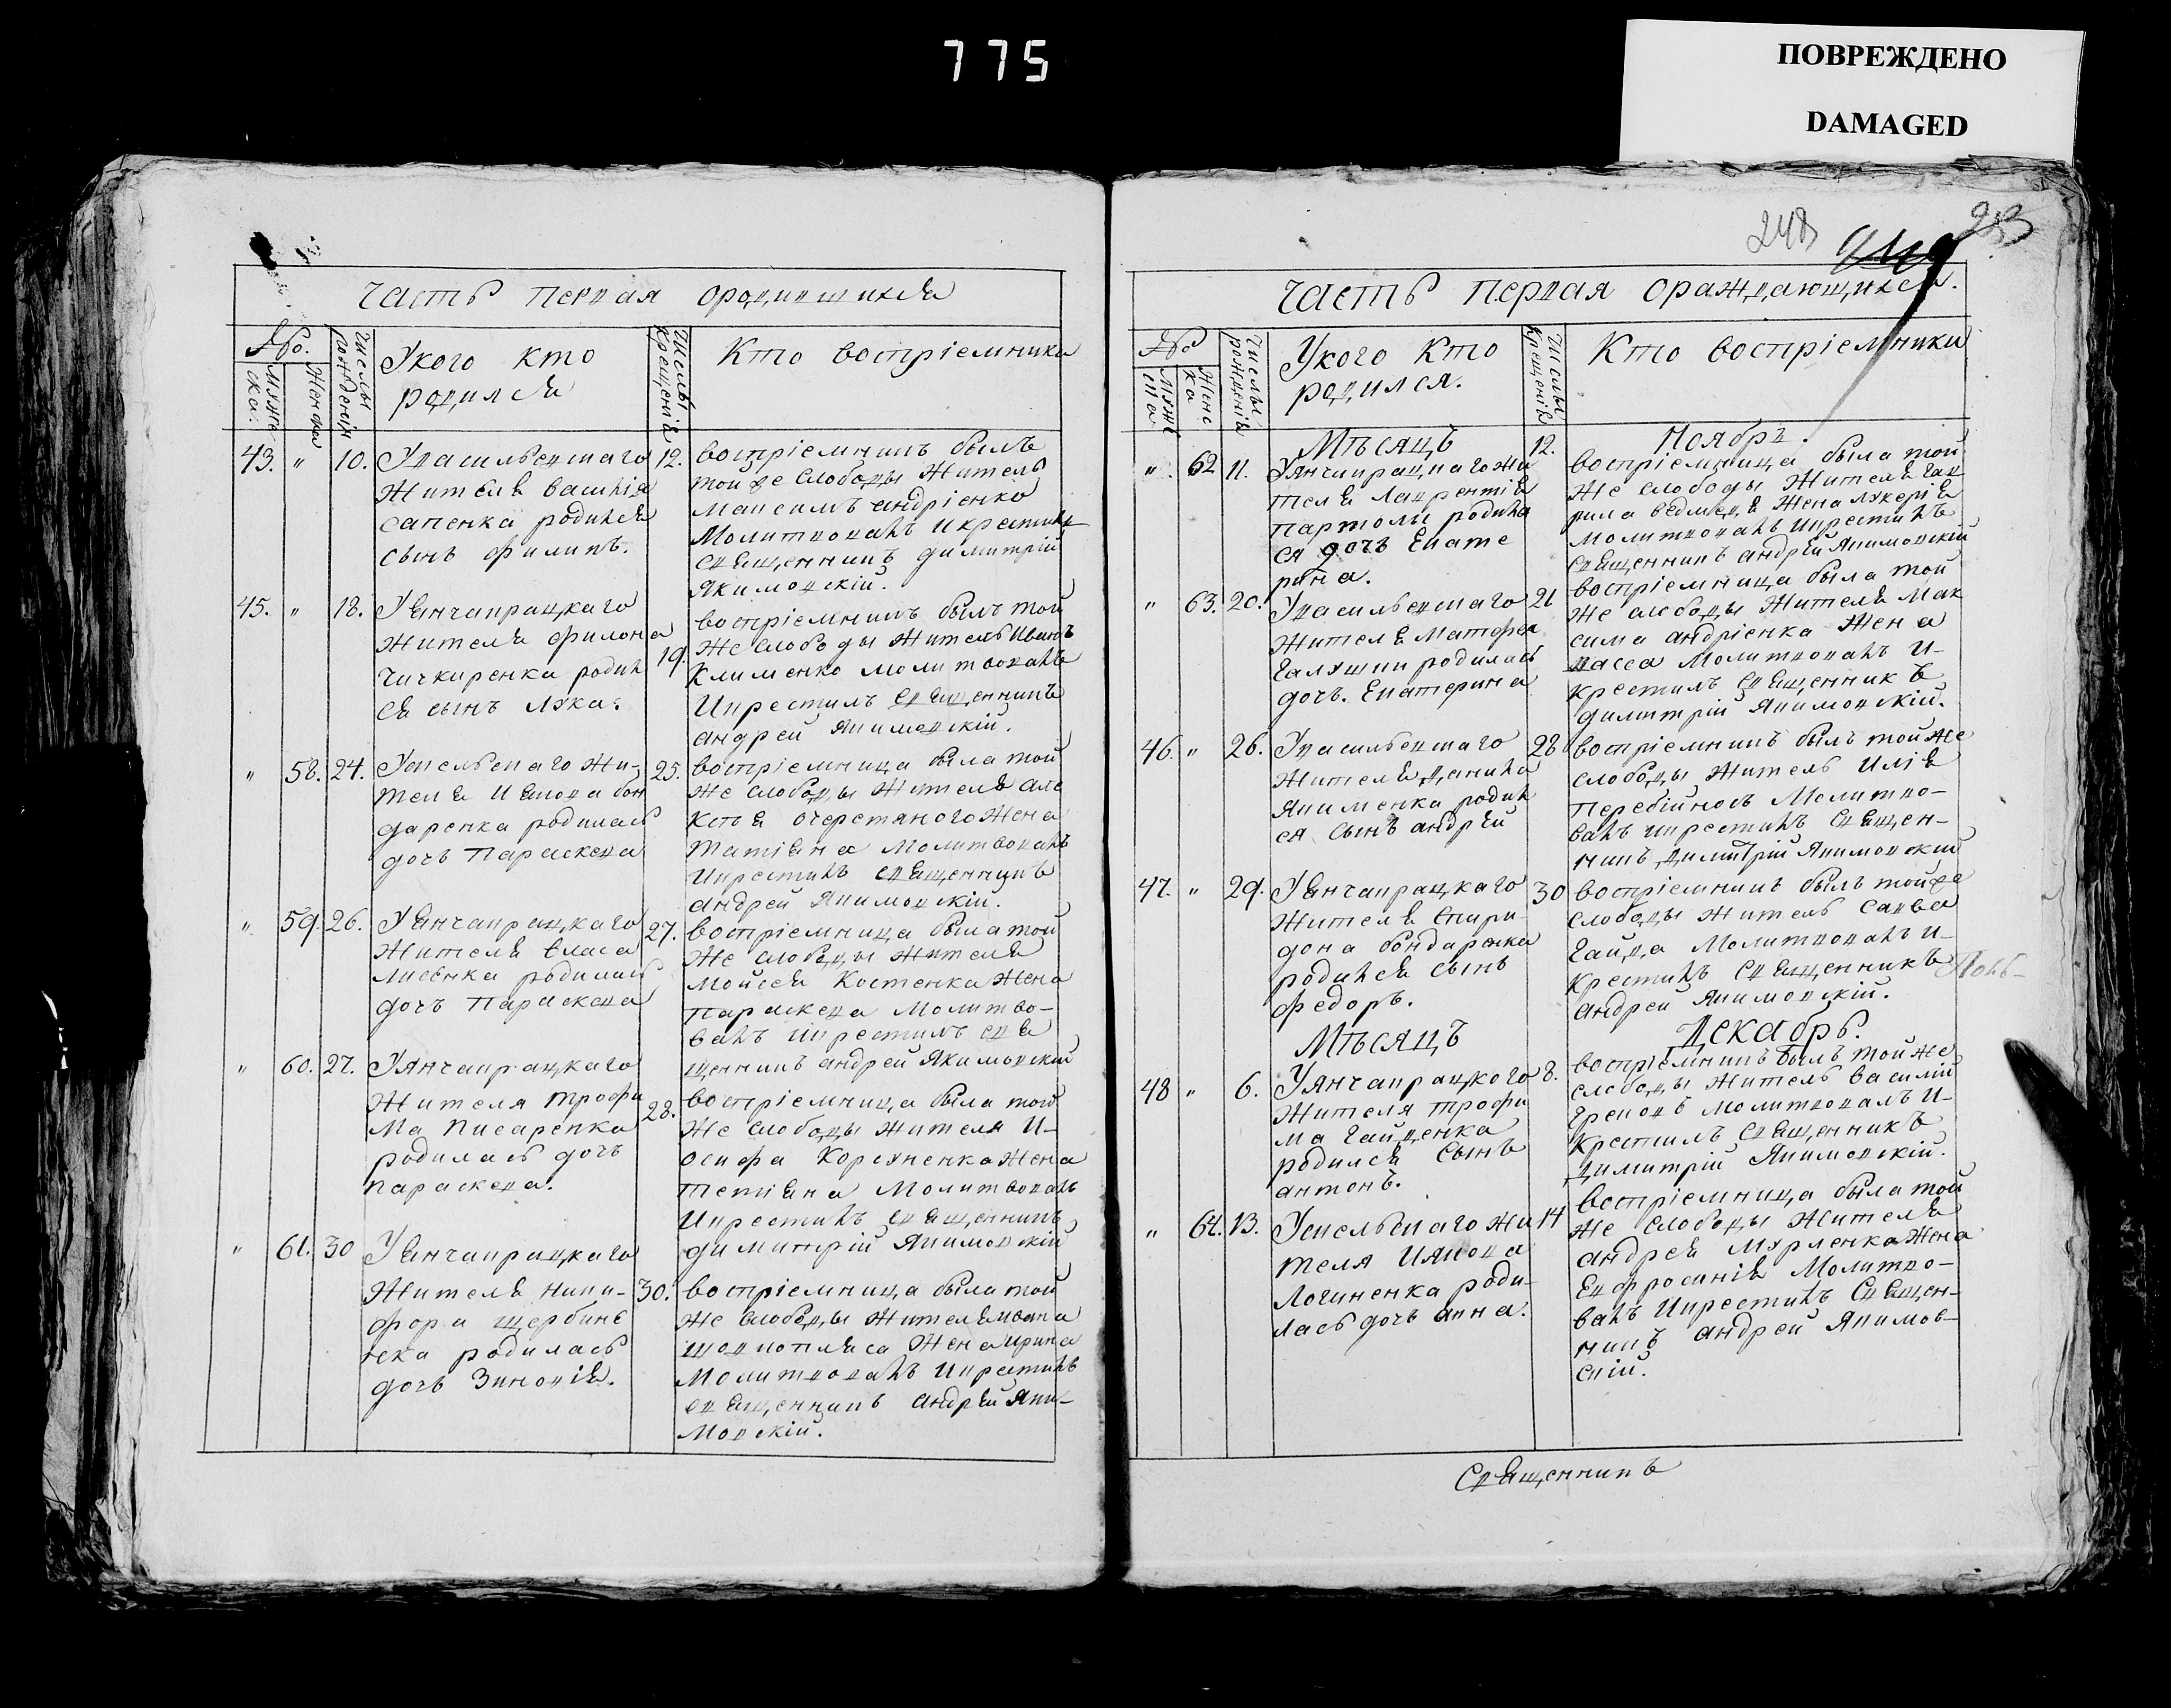 775
ПОВРЕЖДЕНО
DAMAGED
Часть первая ородившихся
№.
Мужеска.
Женска
Числы рожденія
Укого кто родился
Числы крещенія
Кто воспріемники
43. " 10. Увасильевшаго 12.
жителя василія
сапенка родился
сынъ филипъ.
воспріемникъ былъ
тойже слободы житель
максимъ андріенко
Молитвовалъ икрестилъ
священникъ димитрій
якимовскій.
45. " 18. Уянчапрацкаго
жителя филона
Чичкиренка родил
ся сынъ лука.
19.
воспріемникъ былъ той
же слободы житель иванъ
клименко молитвовалъ
икрестилъ священникъ
андрей якимовскій.
" 58. 24. Уисельскаго жи-
теля иякова бон
даренка родилась
дочь параскева
25.
воспріемница была той
же слободы жителя але
ксѣя очеретяного жена
татіана молитвовалъ
икрестилъ священникъ
андрей якимовскій.
" 59. 26. Уянчапрацкаго
жителя власа
лисенка родилась
дочь параскева
27.
воспріемница была той
же слободы жителя
мойсея костенка жена
параскева молитво-
валъ икрестилъ свя
щенникъ андрей якимовскій
" 60. 27. Уянчапрацкаго
жителя трофи
ма писаренка
родилась дочь
параскева.
28.
воспріемница была той
же слободы жителя и-
осифа корсуненка жена
тетіяна молитвовалъ
икрестилъ священникъ
димитрій якимовскій
" 61. 30 Уянчапрацкаго
жителя ники-
фора щербине
нка родилась
дочь зиновія.
30.
воспріемница была той
же слободы жителя
жена ирина
молитвовалъ икрестилъ
священникъ андрей яки-
мовскій.
248
253
Часть первая ораждающихся.
№
Мужеска
Женска
Числы рожденія
Укого кто родился.
Числы крещенія
Кто воспріемники
Мѣсяцъ Ноябрь.
" 62 11. Уянчапрацкаго жи
теля лаврентія
партолы родила
ся дочь екате
рина.
12.
воспріемница была той
же слободы жителя гав
рила ведмедя жена лукерія
молитвовалъ икрестилъ
священникъ андрей якимовскій
" 63. 20. Увасильевшаго
жителя матфея
галушки родилась
дочь. екатерина
21
воспріемница была той
же слободы жителя мак
сима андріенка жена
васса молитвовалъ и-
крестилъ священникъ
димитрій якимовскій.
46. " 26. Увасильевшаго
жителя данила
якименка родил
ся сынъ андрей
28
воспріемникъ былъ тойже
слободы житель илія
перебійносъ молитво-
валъ икрестилъ священ-
никъ димитрій якимовскій
47. " 29. Уянчапрацкаго
жителя спири
дона бондаренка
родился сынъ
федоръ.
30
воспріемникъ былъ тойже
слободы житель савва
гайда молитвовалъ и-
крестилъ священникъ
андрей якимовскій.
Мѣсяцъ Декабрь.
48 " 6. Уянчапрацкого
жителя трофи
ма гайденка
родился сынъ
антонъ.
8.
воспріемникъ былъ тойже
слободы житель василій
грековъ молитвовалъ и-
крестилъ священникъ
димитрій якимовскій.
" 64. 13. Уисельскаго жи
теля иякова
логиненка роди-
лась дочь анна.
14
воспріемница была той
же слободы жителя
андрея мурленка жена
евфросинія молитво-
валъ икрестилъ священ-
никъ андрей якимов-
скій.
Священникъ